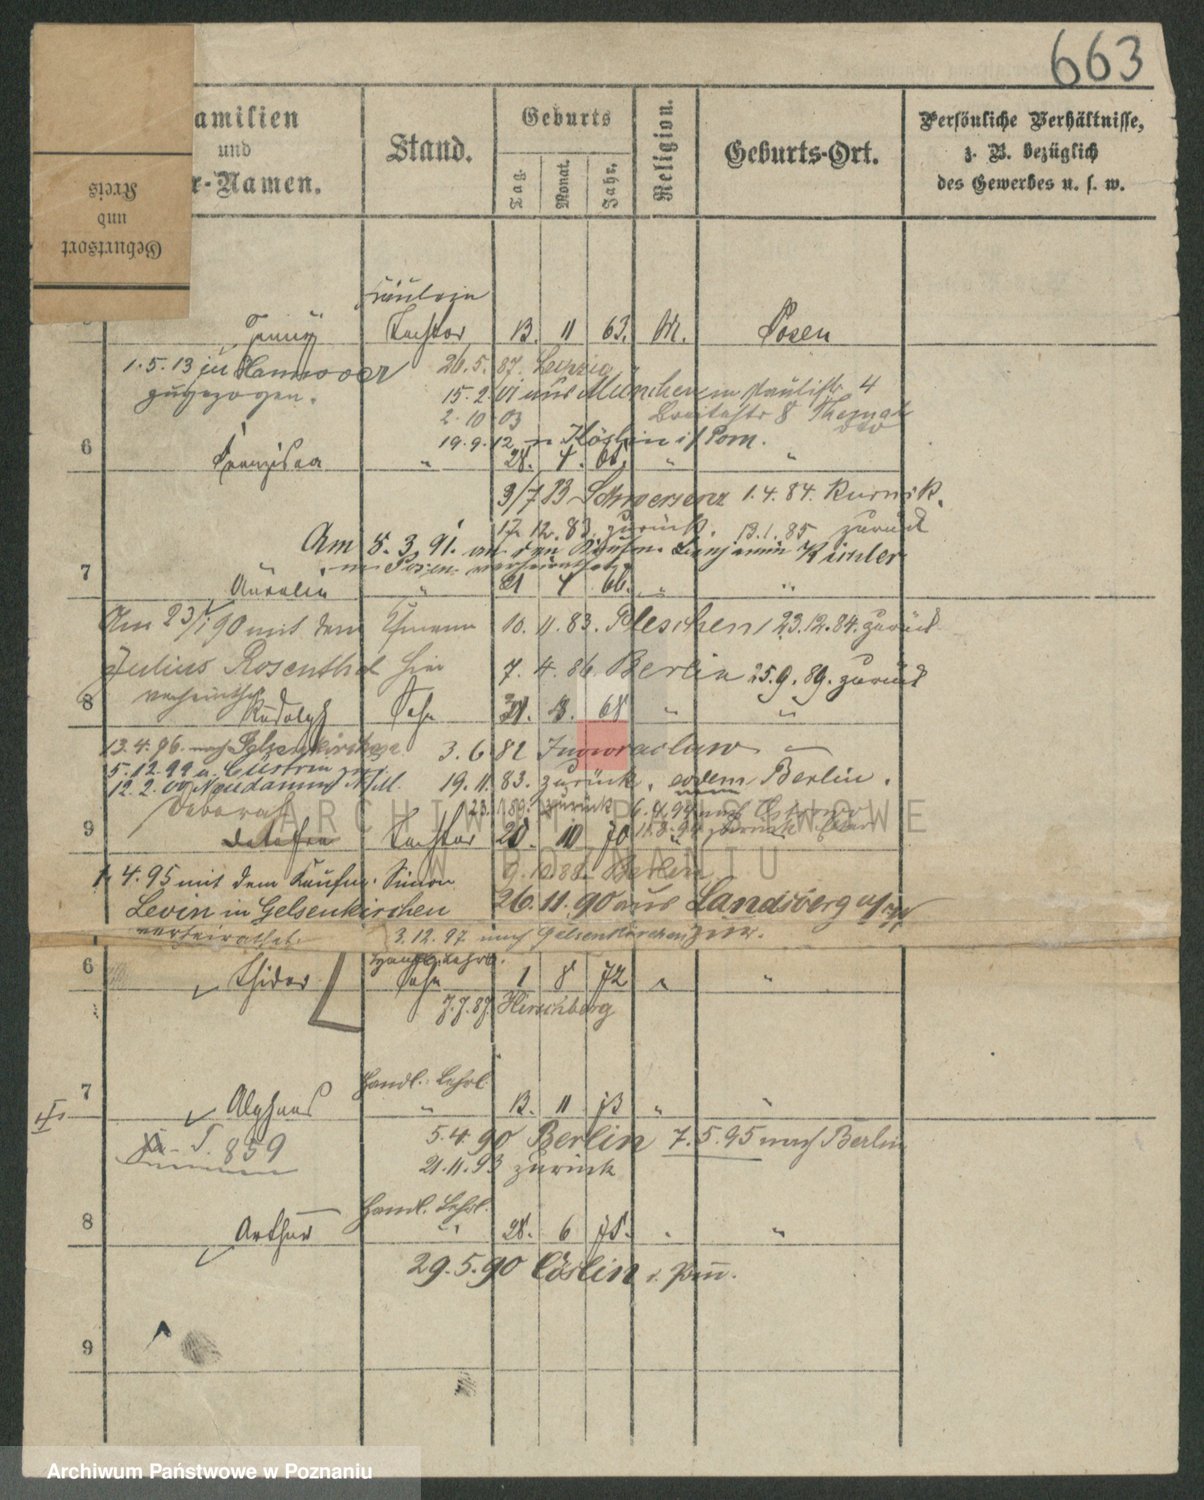 663
amilien
und
r-Namen.
Stand.
Geburts
Tag.
Monat.
Jahr.
Religion.
Geburts-Ort.
Persönliche Verhältnisse,
z. B. bezüglich
des Gewerbes u. s. w.
Geburtsort
und
Kreis
Fräulein
Jenny Tochter 13. 11 63. M. Posen
1. 5. 13 zu Hannover 26. 5. 87. Leipzig
zugezogen. 15. 2. 01 aus München Paulistr. 4
2. 10. 03 Breitestr 8
19. 9. 12 Köslin i/Pom.
6 Franziska " 28. 4. " "
3/7 83 Schwersenz 1. 4. 84. Kurnik.
17. 12. 83. zurück. 13. 1. 85 zurück
Am 5. 3. 91. an den Kaufm. Benjamin Kimler
in Posen verheirathet
7 Aurelie " 21 4 66. " "
Am 23/ 90 mit dem 10. 11. 83. Pleschen 23. 12. 84. zurück
Julius Rosenthal hier 7. 4. 86. Berlin 25. 9. 89. zurück
verheirathet
8 Rudolph Sohn 68 " "
13. 4. 96. nach Gelsenkirchen 3. 6. 82 Inowraclaw
5. 12. 99 a. Cüstrin 19. 11. 83. zurück. eodem Berlin.
12. 2. 00 Neudamm zurück
Deborah
9 Tochter 20. 10 70 "
1. 4. 95 mit dem Kaufm. Simon 9. 10. 88. Berlin
Levin in Gelsenkirchen 26. 11. 90 aus Landsberg a/W
verheirathet. 3. 12. 97 nach Gelsenkirchen zur.
Handl. Lehrl.
6 Isidor Sohn 1 8 72 " "
7. 7. 87. Hirschberg
Handl. Lehrl.
7 Alphons " 13. 11 73 " "
S. 859 5. 4. 90 Berlin 7. 5. 95 nach Berlin
21. 11. 93 zurück
Handl. Lehrl.
8 Arthur " 28. 6 75. " "
29. 5. 90 Cöslin i. Pom.
9
ARCHIWUM PAŃSTWOWE
W POZNANIU
Archiwum Państwowe w Poznaniu